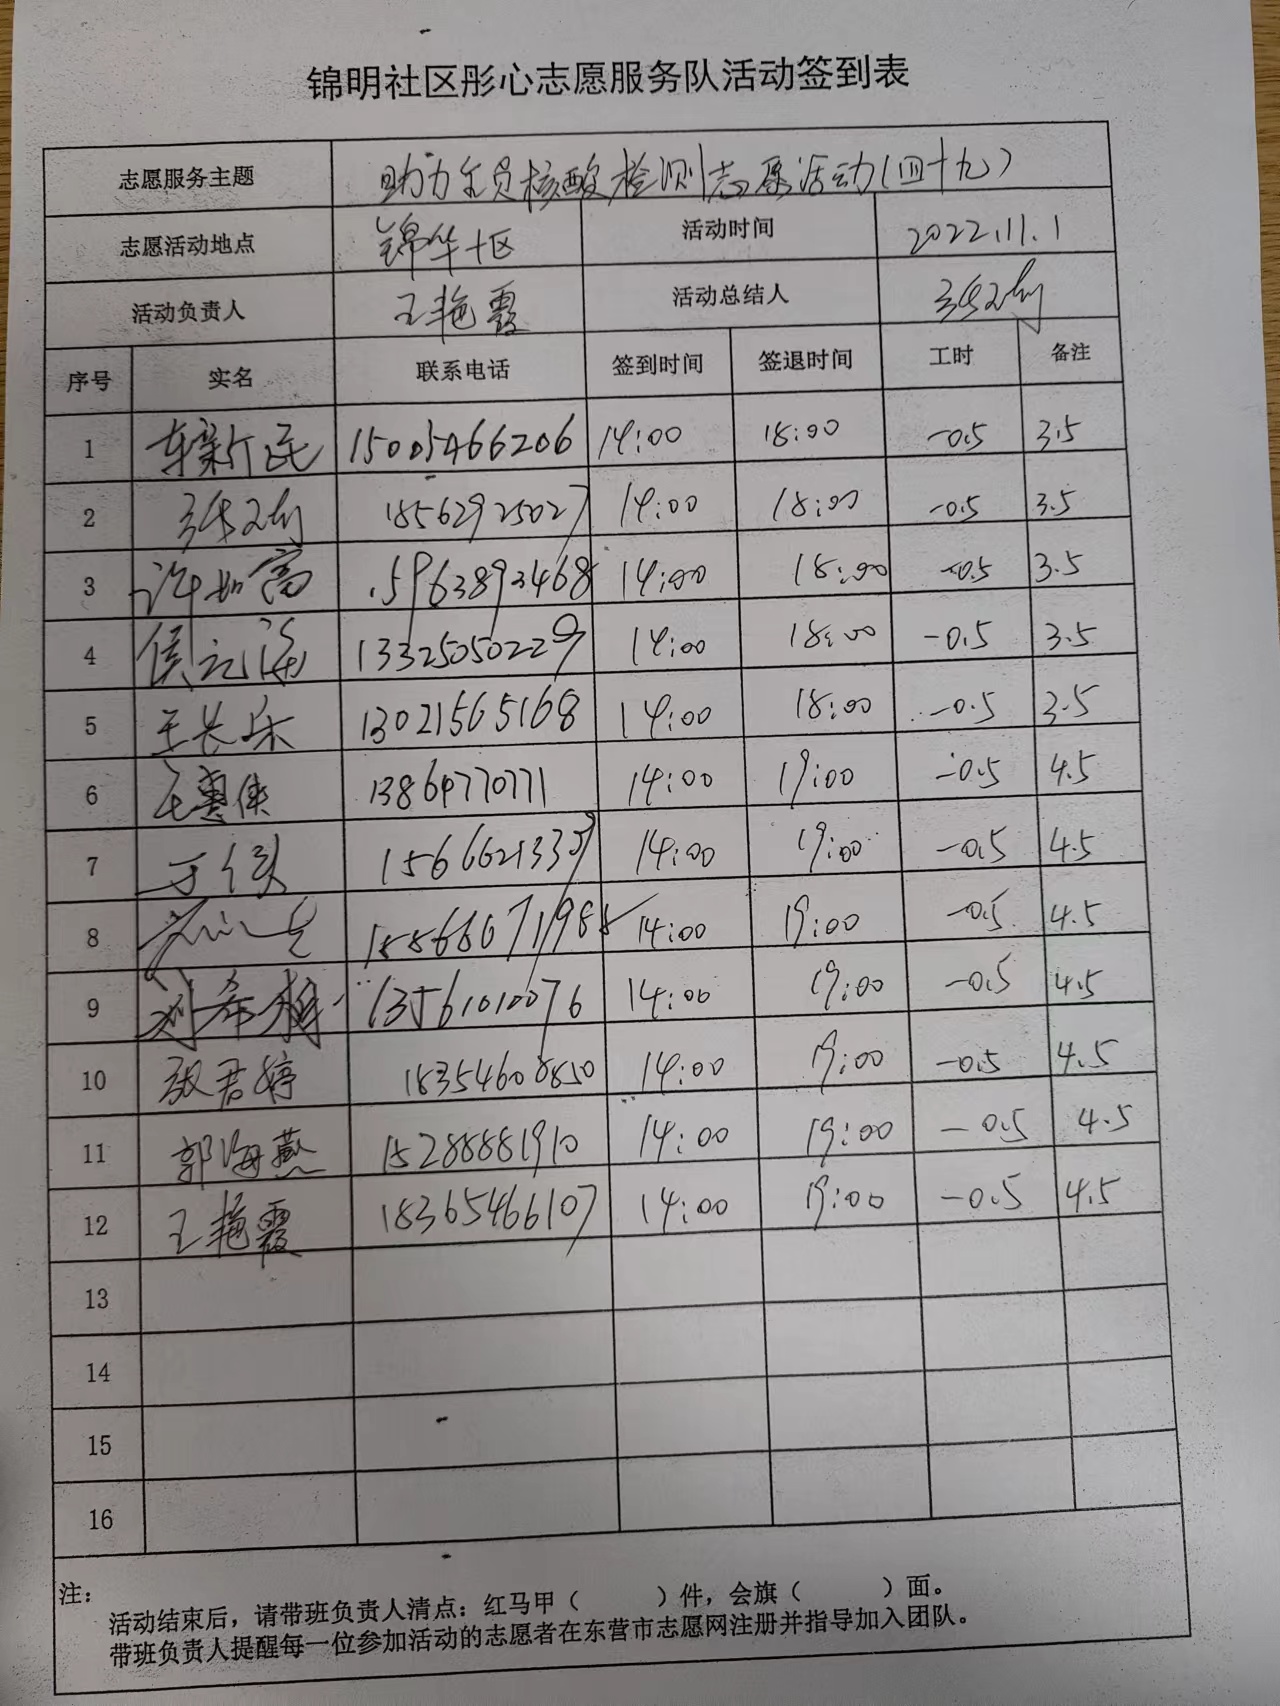 锦明社区彤心志愿服务队活动签到表
志愿服务主题 助力全员核酸检测志愿活动(四十九)
志愿活动地点 锦华十区 活动时间 2022.11.1
活动负责人 王艳霞 活动总结人
序号 实名 联系电话 签到时间 签退时间 工时 备注
1 车新民 15005466206 14:00 18:00 -0.5 3.5
2 18562925027 14:00 18:00 -0.5 3.5
3 许如高 15963893468 14:00 18:00 -0.5 3.5
4 侯 13325050229 14:00 18:00 -0.5 3.5
5 王长乐 13021565168 14:00 18:00 -0.5 3.5
6 王惠侠 13864770771 14:00 19:00 -0.5 4.5
7 14:00 19:00 -0.5 4.5
8 14:00 19:00 -0.5 4.5
9 刘希梅 13561010076 14:00 19:00 -0.5 4.5
10 张君婷 18354608850 14:00 19:00 -0.5 4.5
11 郭海燕 15288881910 14:00 19:00 -0.5 4.5
12 王艳霞 18365466107 14:00 19:00 -0.5 4.5
13
14
15
16
注：
活动结束后，请带班负责人清点：红马甲（ ）件，会旗（ ）面。
带班负责人提醒每一位参加活动的志愿者在东营市志愿网注册并指导加入团队。